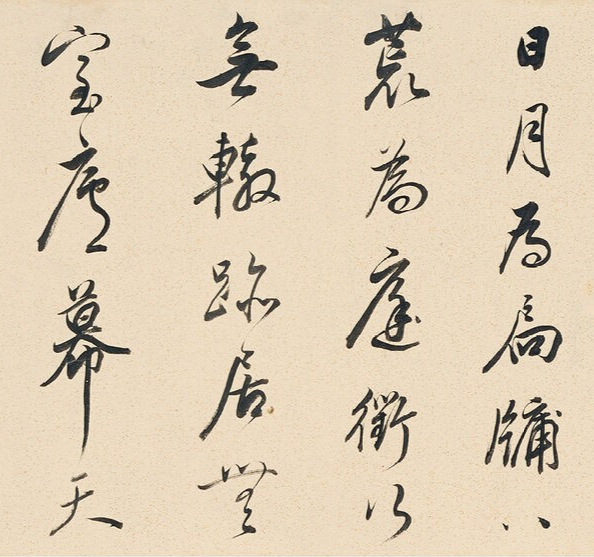 日月為扃牖八
荒為庭衢行
無轍跡居無
室廬幕天